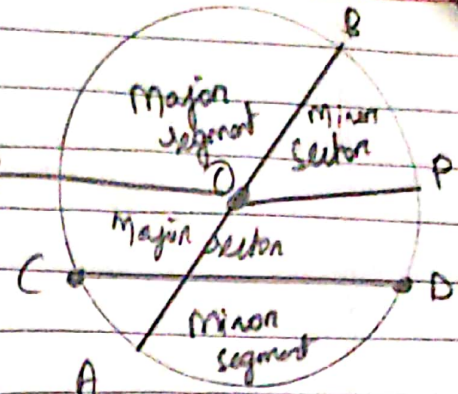 B
Major
segment
Minor
sector
O
P
Major sector
C
D
Minor
segment
A